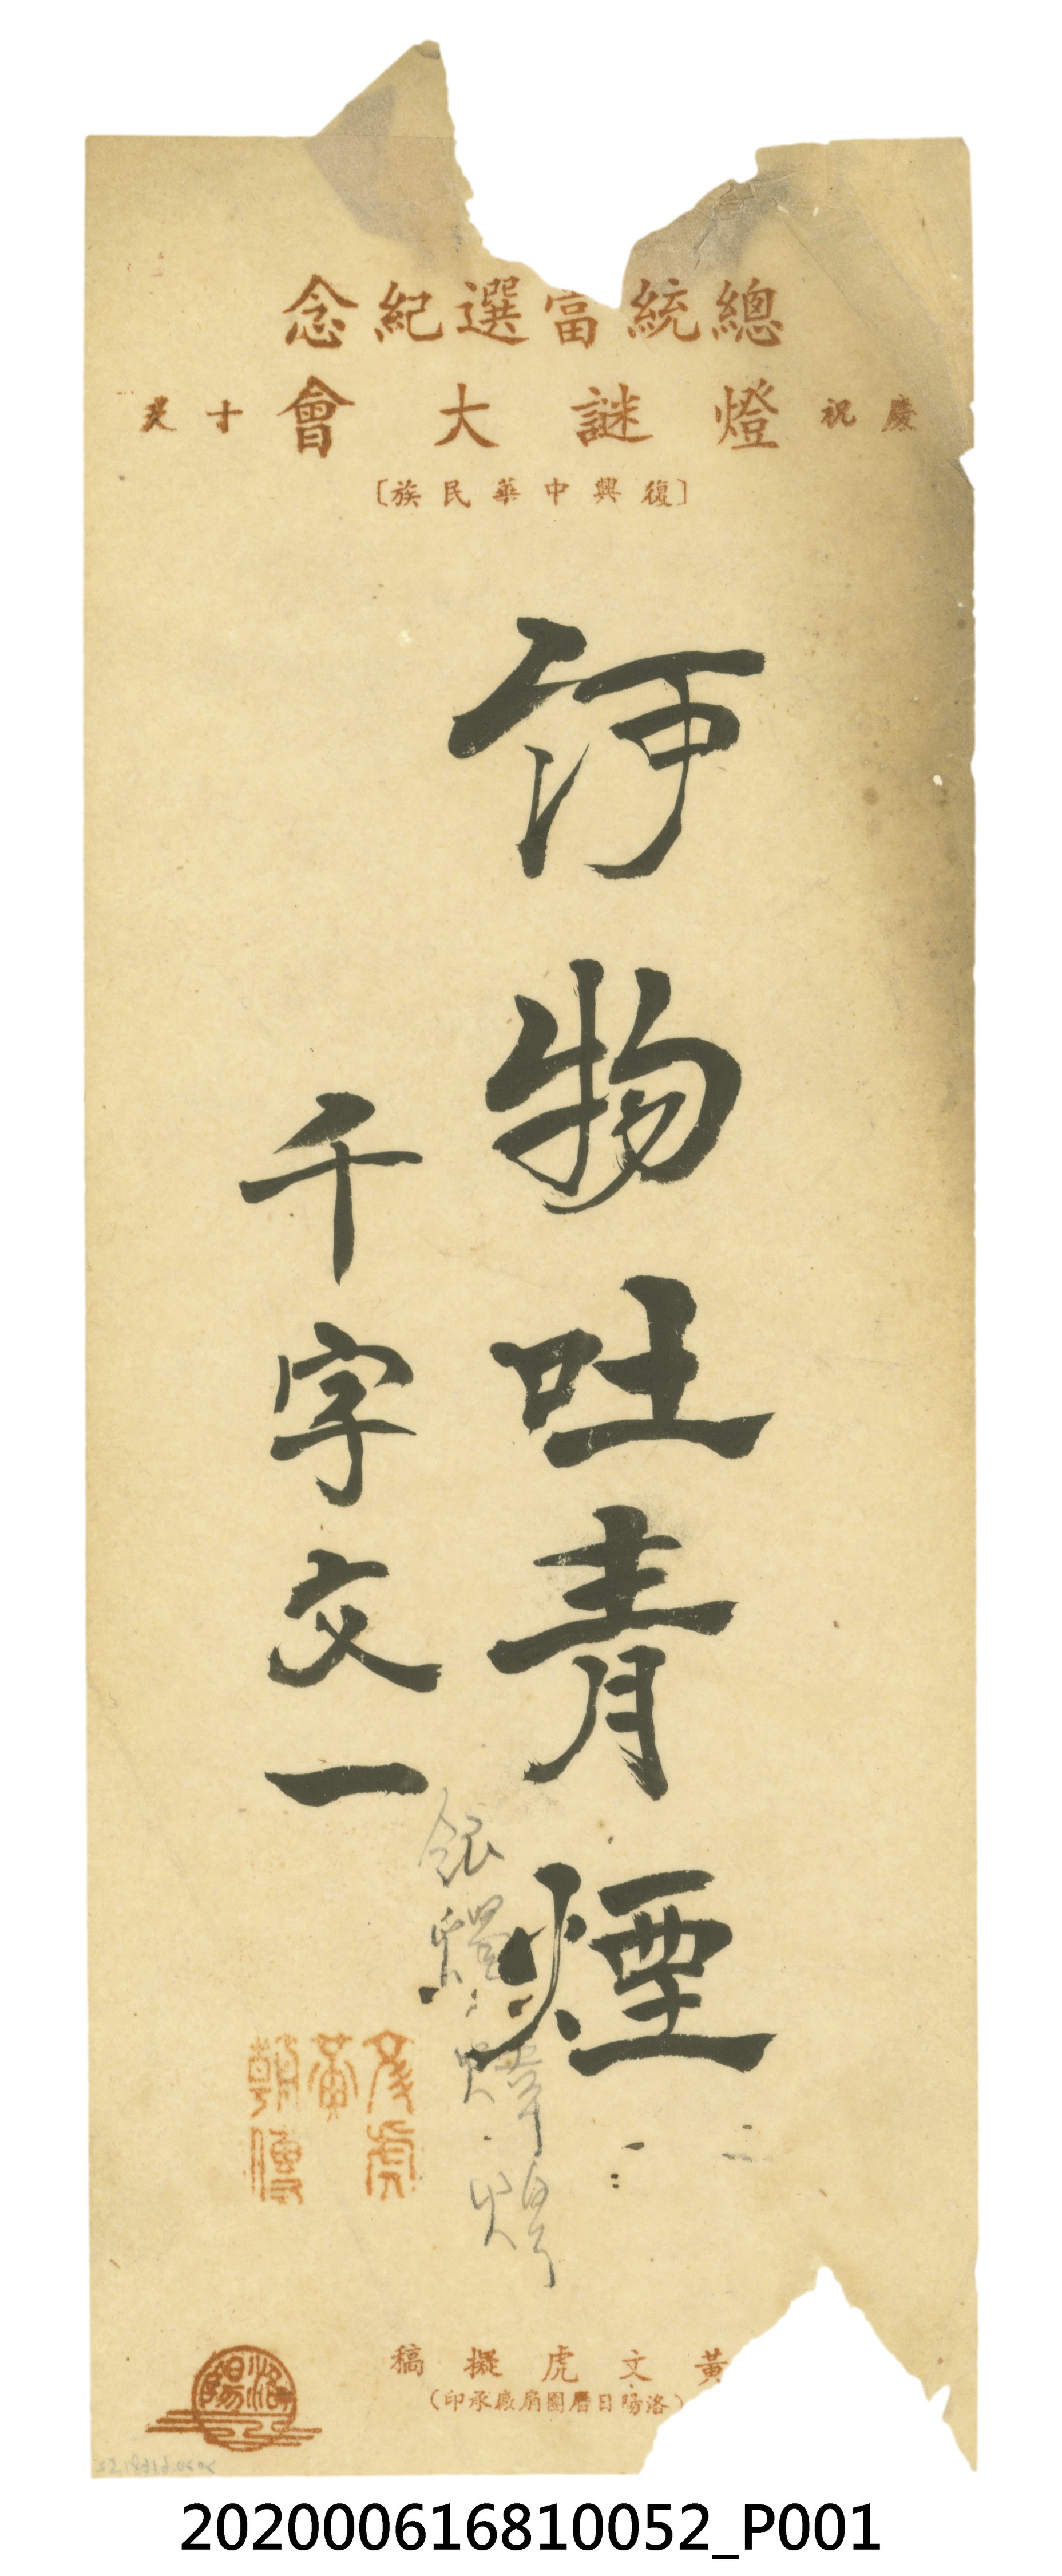 總統當選紀念
慶祝 燈謎大會 十天
〔復興中華民族〕
何物吐青煙
千字文一
銀燭煒煌
彥虎
黃
朝傳
黃文虎擬稿
(洛陽日曆團扇廠承印)
洛陽
202000616810052_P001